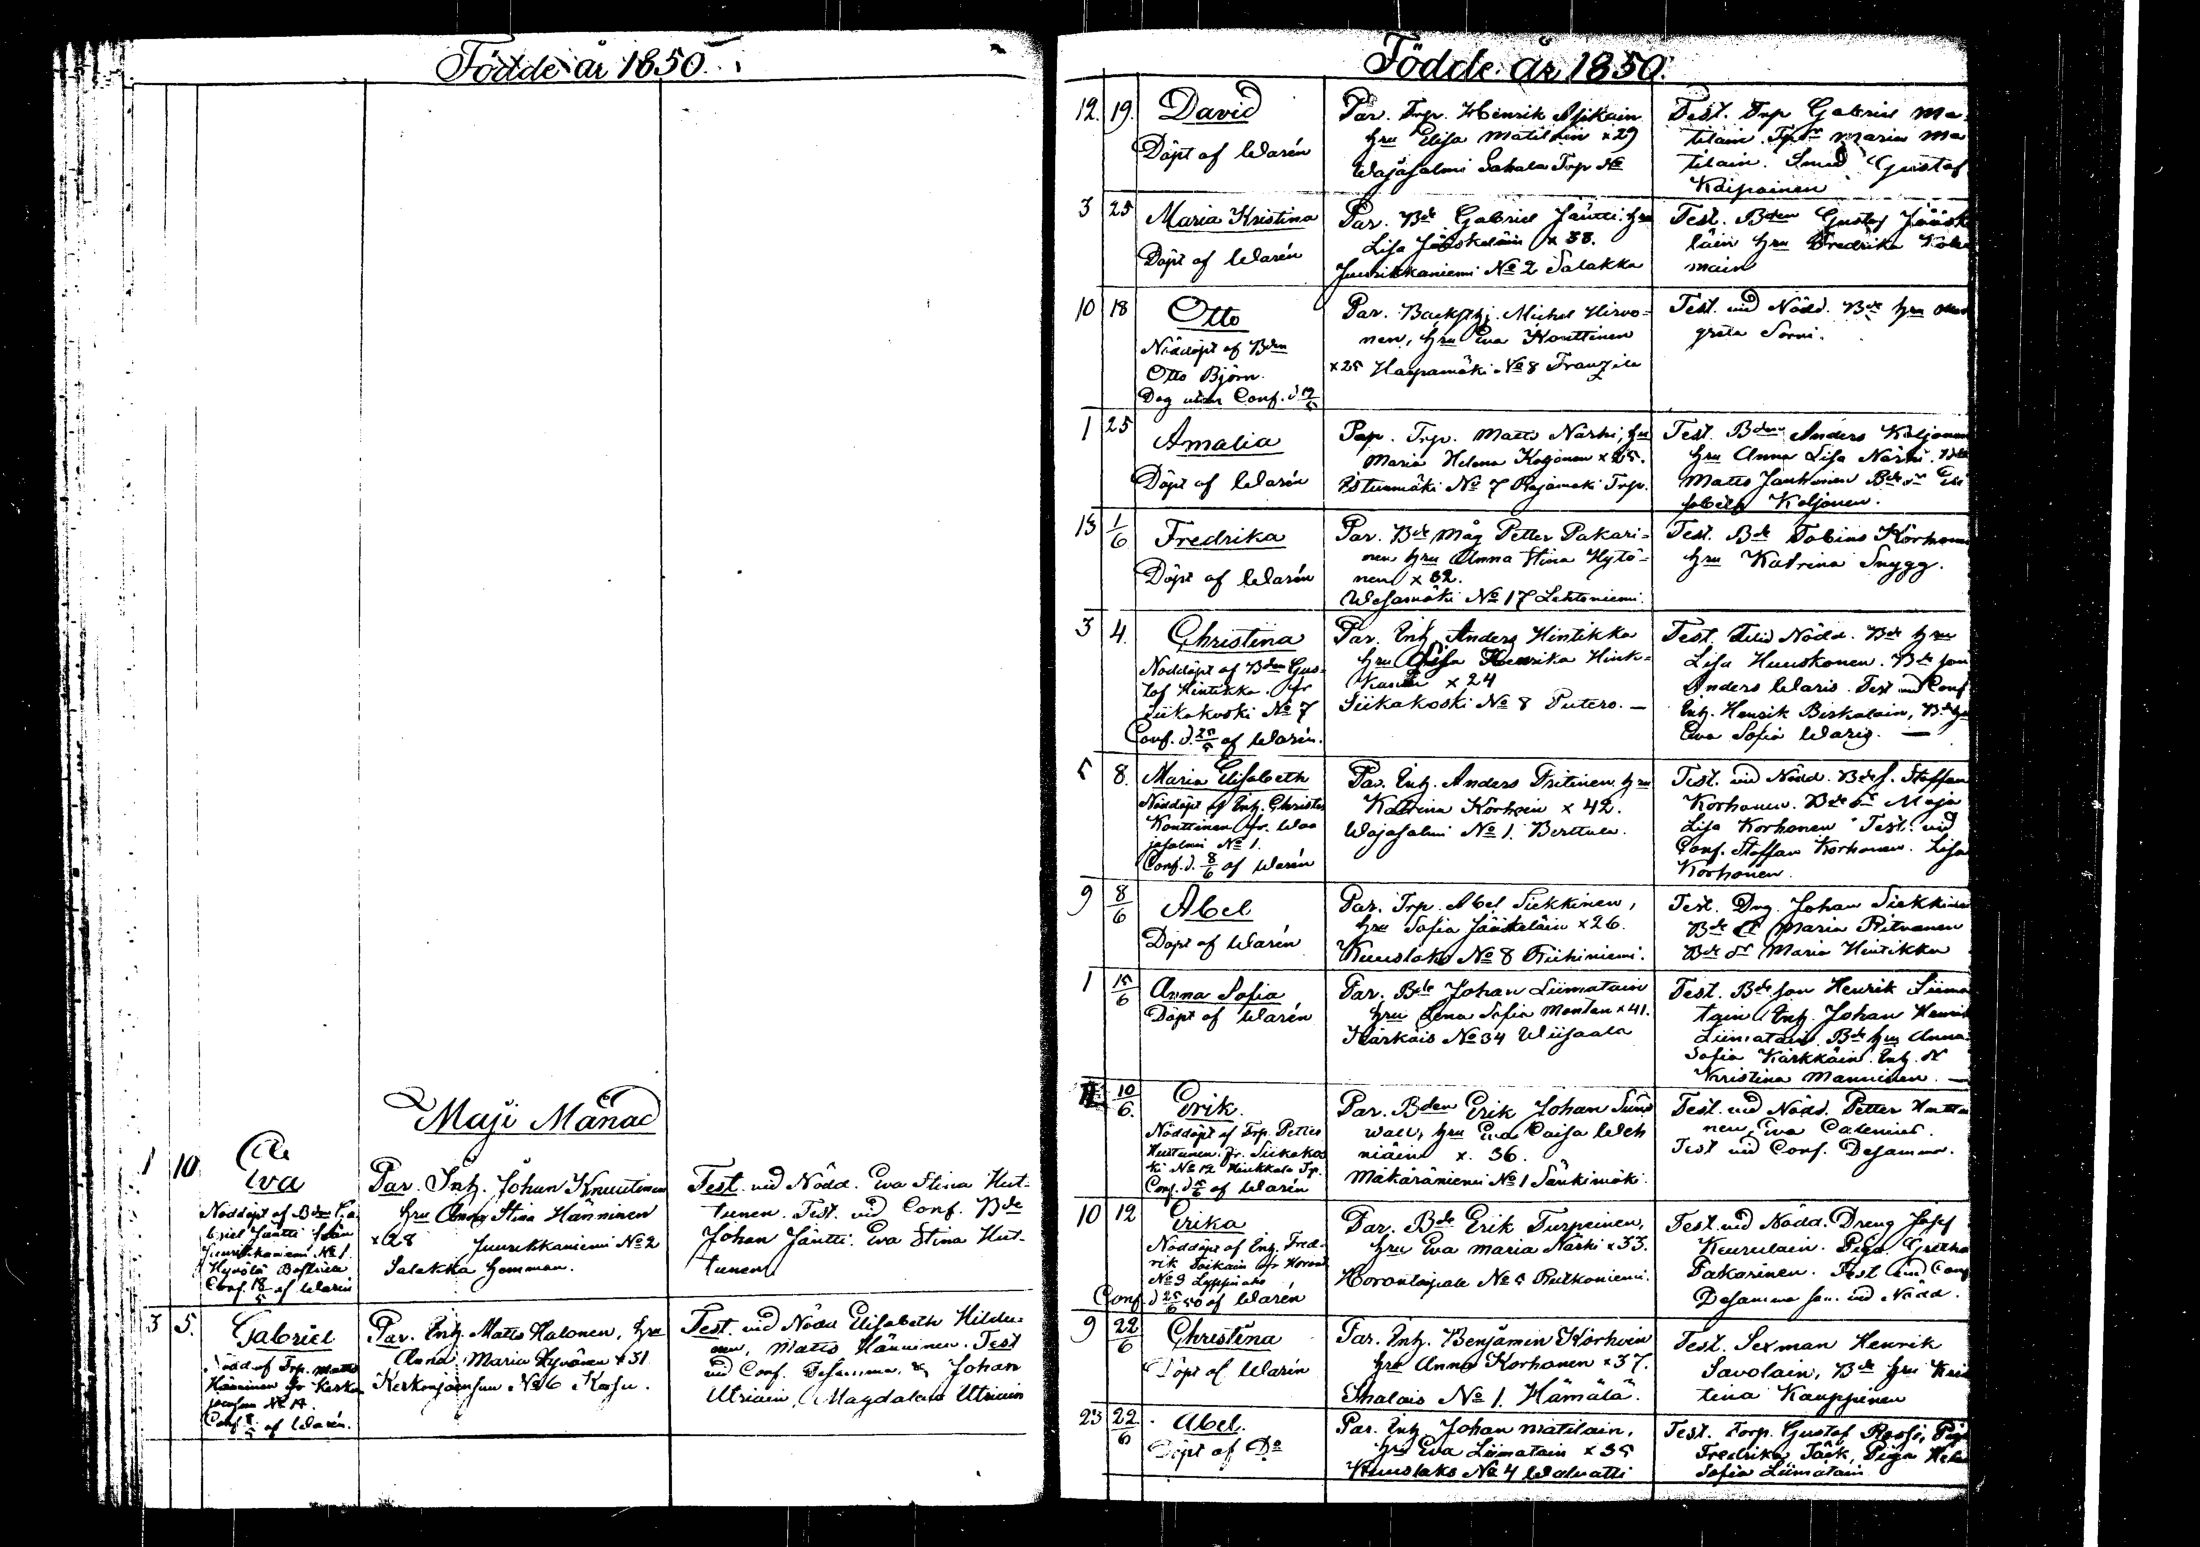 Födde år 1850.
Maji Månad
1 10
Eva
Nöddöpt af Bden Ga-
briel Jäntti från
Juurikkaniemi No 1.
Hyvölä
Conf. 18/5 af Warén
Par. Inh. Johan Knuutinen
hru Anna Stina Hänninen
x 28 Juurikkaniemi No 2
Salakka hemman.
Test. vid Nödd. Eva Stina Hut-
tunen. Test. vid Conf. Bde
Johan Jäntti. Eva Stina Hut-
tunen
3 5.
Gabriel
Nödd af Trp. Matts
Hänninen fr Kerkon
joensuu No 14.
Conf. af Warén.
Par. Inh. Matts Halonen, hru
Anna Maria Hyvönen x 31
Kerkonjoensuu No 6 Korsu.
Test. vid Nödd Elisabeth Hildu-
nen, Matts Hänninen. Test
vid Conf. Desamma, & Johan
Utriain, Magdalena Utriain
Födde år 1850.
12. 19.
David
Döpt af Warén
Par. Trp. Henrik Asikain
hru Elisa Matilain x 29
Wajasalmi Sahala Trp No
Test. Trp Gabriel Ma-
tilain. Maria Ma
tilain. Smed Gustaf
Kaipainen
3 25
Maria Kristina
Döpt af Warén
Par. Bde Gabriel Jäntti. hru
Lisa Jääskeläin x 38.
Juurikkaniemi No 2 Salakka
Test. Bden Gustaf Jääsk
läin hru Fredrika Kole
main
10 18
Otto
Nöddöpt af Bden
Otto Björn.
Dog utan Conf. d 19/5
Par. Backsthj. Michel Hirvo-
nen, hru Eva Konttinen
x 25 Haapamäki No 8 Franzila
Test. vid Nödd. Bde hru
greta Sorri.
1 25
Amalia
Döpt af Warén
Par. Trp. Matts Närhi, hru
Maria Helena Koljonen x 25.
Istunmäki No 7 Rajamäki Trp.
Test. Bden Anders Koljonen
hru Anna Lisa Närhi.
Matts Janhunen Bde dr Eli
sabeth Koljonen.
13 1/6
Fredrika
Döpt af Warén
Par. Bde måg Petter Pakari-
nen hru Anna Stina Hytö-
nen x 32.
Wesamäki No 17 Lehtoniemi.
Test. Bde Tobias Korhonen
hru Katrina Snygg.
3 4.
Christina
Nöddöpt af Bden Gus-
tof Hintikka. fr
Siikakoski No 7
Conf. d. af Warén.
Par. Inh. Anders Hintikka
hru Lisa Henrika Hink-
x 24
Siikakoski No 8 Putero. —
Test. vid Nödd. Bde hru
Lisa Huuskonen. Bde son
Anders Waris. Test vid Conf
Inh. Henrik Birkalain, Bde hru
Eva Sofia Waris. —
5 8.
Maria Elisabeth
Nöddöpt af Inh. Christer
Konttinen fr. Waa
jasalmi No 1.
Conf. d. 8/6 af Warén
Par. Inh. Anders Tritinen hru
Katrina Korhoin x 42.
Wajasalmi No 1. Berttala.
Test. vid Nödd. Bde s. Staffan
Korhonen. Bde dr Maja
Lisa Korhonen Test. vid
Conf. Staffan Korhonen. Lisa
Korhonen.
9 8/6
Abel
Döpt af Warén
Par. Trp. Abel Siekkinen,
hru Sofia Jääskeläin x 26.
Kuuslaks No 8 Riihiniemi.
Test. Dng. Johan Siekkinen
Bde dr Maria Pitvanen
Bde dr Maria Hintikka
1 15/6
Anna Sofia
Döpt af Warén
Par. Bde Johan Liimatain
hru Lena Sofia Montan x 41.
Kärkkäis No 34 Wiisaala
Test. Bde son Henrik Liima
tain Inh. Johan Henrik
Liimatain. Bde hru Anna
Sofia Kärkkäin. Inh. dr
Kristina Manninen. —
10/6.
Erik.
Nöddöpt af Trp. Petter
Huttunen fr. Siikakos
ki No 12 Hinkkala Tp.
Conf. d af Warén
Par. Bden Erik Johan Sund
wall, hru Eva Caisa Weh
niäin x. 36.
Mäkäräniemi No 1 Särkimäki.
Test. vid Nödd. Petter Huttu
nen, Eva Calenius.
Test vid Conf. Desamma.
10 12
Erika
Nöddöpt af Inh. Fred-
rik Soikain fr Horont
No 3 Lyppinaho
Conf. d 25/6 50 af Warén
Par. Bde Erik Turpeinen,
hru Eva Maria Närhi x 33.
Horontaipale No 5 Rutkoniemi.
Test. vid Nödd. Dreng Josef
Kuurulain. Piga Gretha
Pakarinen. Test vid Conf
Desamma som vid Nödd.
9 22/6
Christina
Döpt af Warén
Par. Inh. Benjamin Korhoin
hru Anna Korhonen x 37.
Shalais No 1. Hämälä.
Test. Sexman Henrik
Savolain, Bde hru Kris
tina Kauppinen
23 22/6
Abel.
Döpt af Do
Par. Inh Johan Matilain,
hru Eva Liimatain x 35
Kuuslaks No 4 Waluatti
Test. Torp. Gustaf Roosi, Piga
Fredrika Täck, Piga Hele
Sofia Liimatain